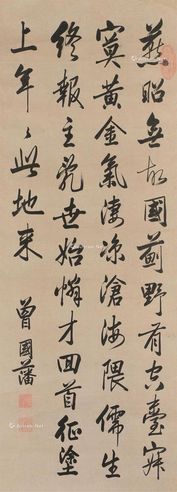 燕昭無故國蓟野有空臺寂
寞黃金氣淒涼滄海隈儒生
終報主亂世始憐才回首征塗
上年〻此地来
曾國藩